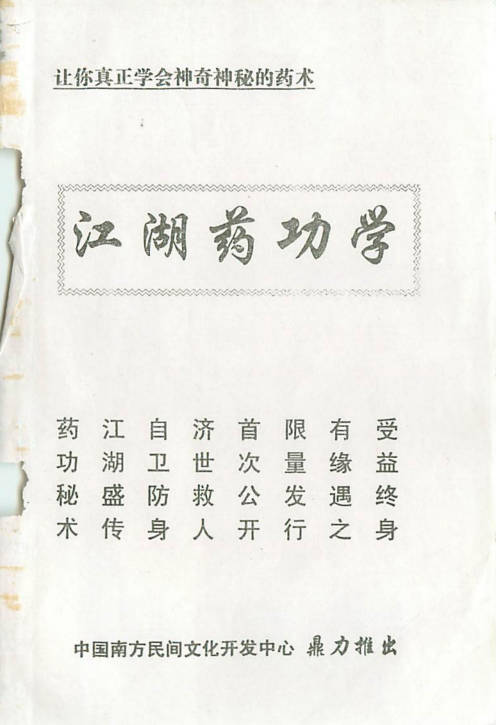 让你真正学会神奇神秘的药术
江湖药功学
药功秘术
江湖盛传
自卫防身
济世救人
首次公开
限量发行
有缘遇之
受益终身
中国南方民间文化开发中心 鼎力推出